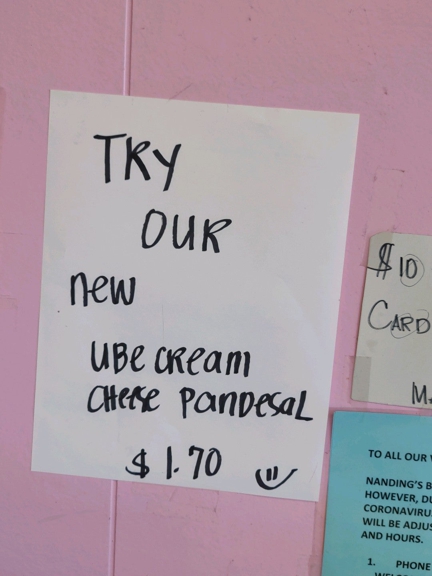 TRY
OUR
new
UBE CREAM
CHEESE PANDESAL
$1.70
$10
CARD
TO ALL OUR
NANDING'S
HOWEVER,
WILL BE
AND HOURS.
1. PHONE